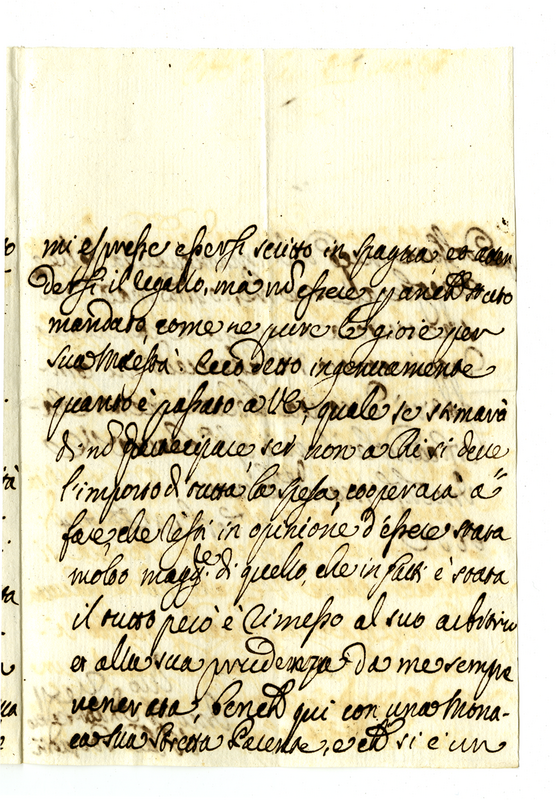 mi espresse essersi scritto in spagna, et atten
dersi il regallo, mà nõ essere p anch stato
mandato, come ne pure le gioie per
sua Maestà: Ecco detto ingenuamente
quanto è passato a VE, quale se stimarà
di nõ participare ser non a lui si deve
l'importo di tutta la spesa, cooperarà a
fare, che resti in opinione d'essere stata
molto magg.re di quello, che in fatti è stata
il tutto però è rimesso al suo arbitrio
et alla sua prudenza da me sempre
venerata, bench qui con una Mona-
ca sua stretta Parente, e ch si è un